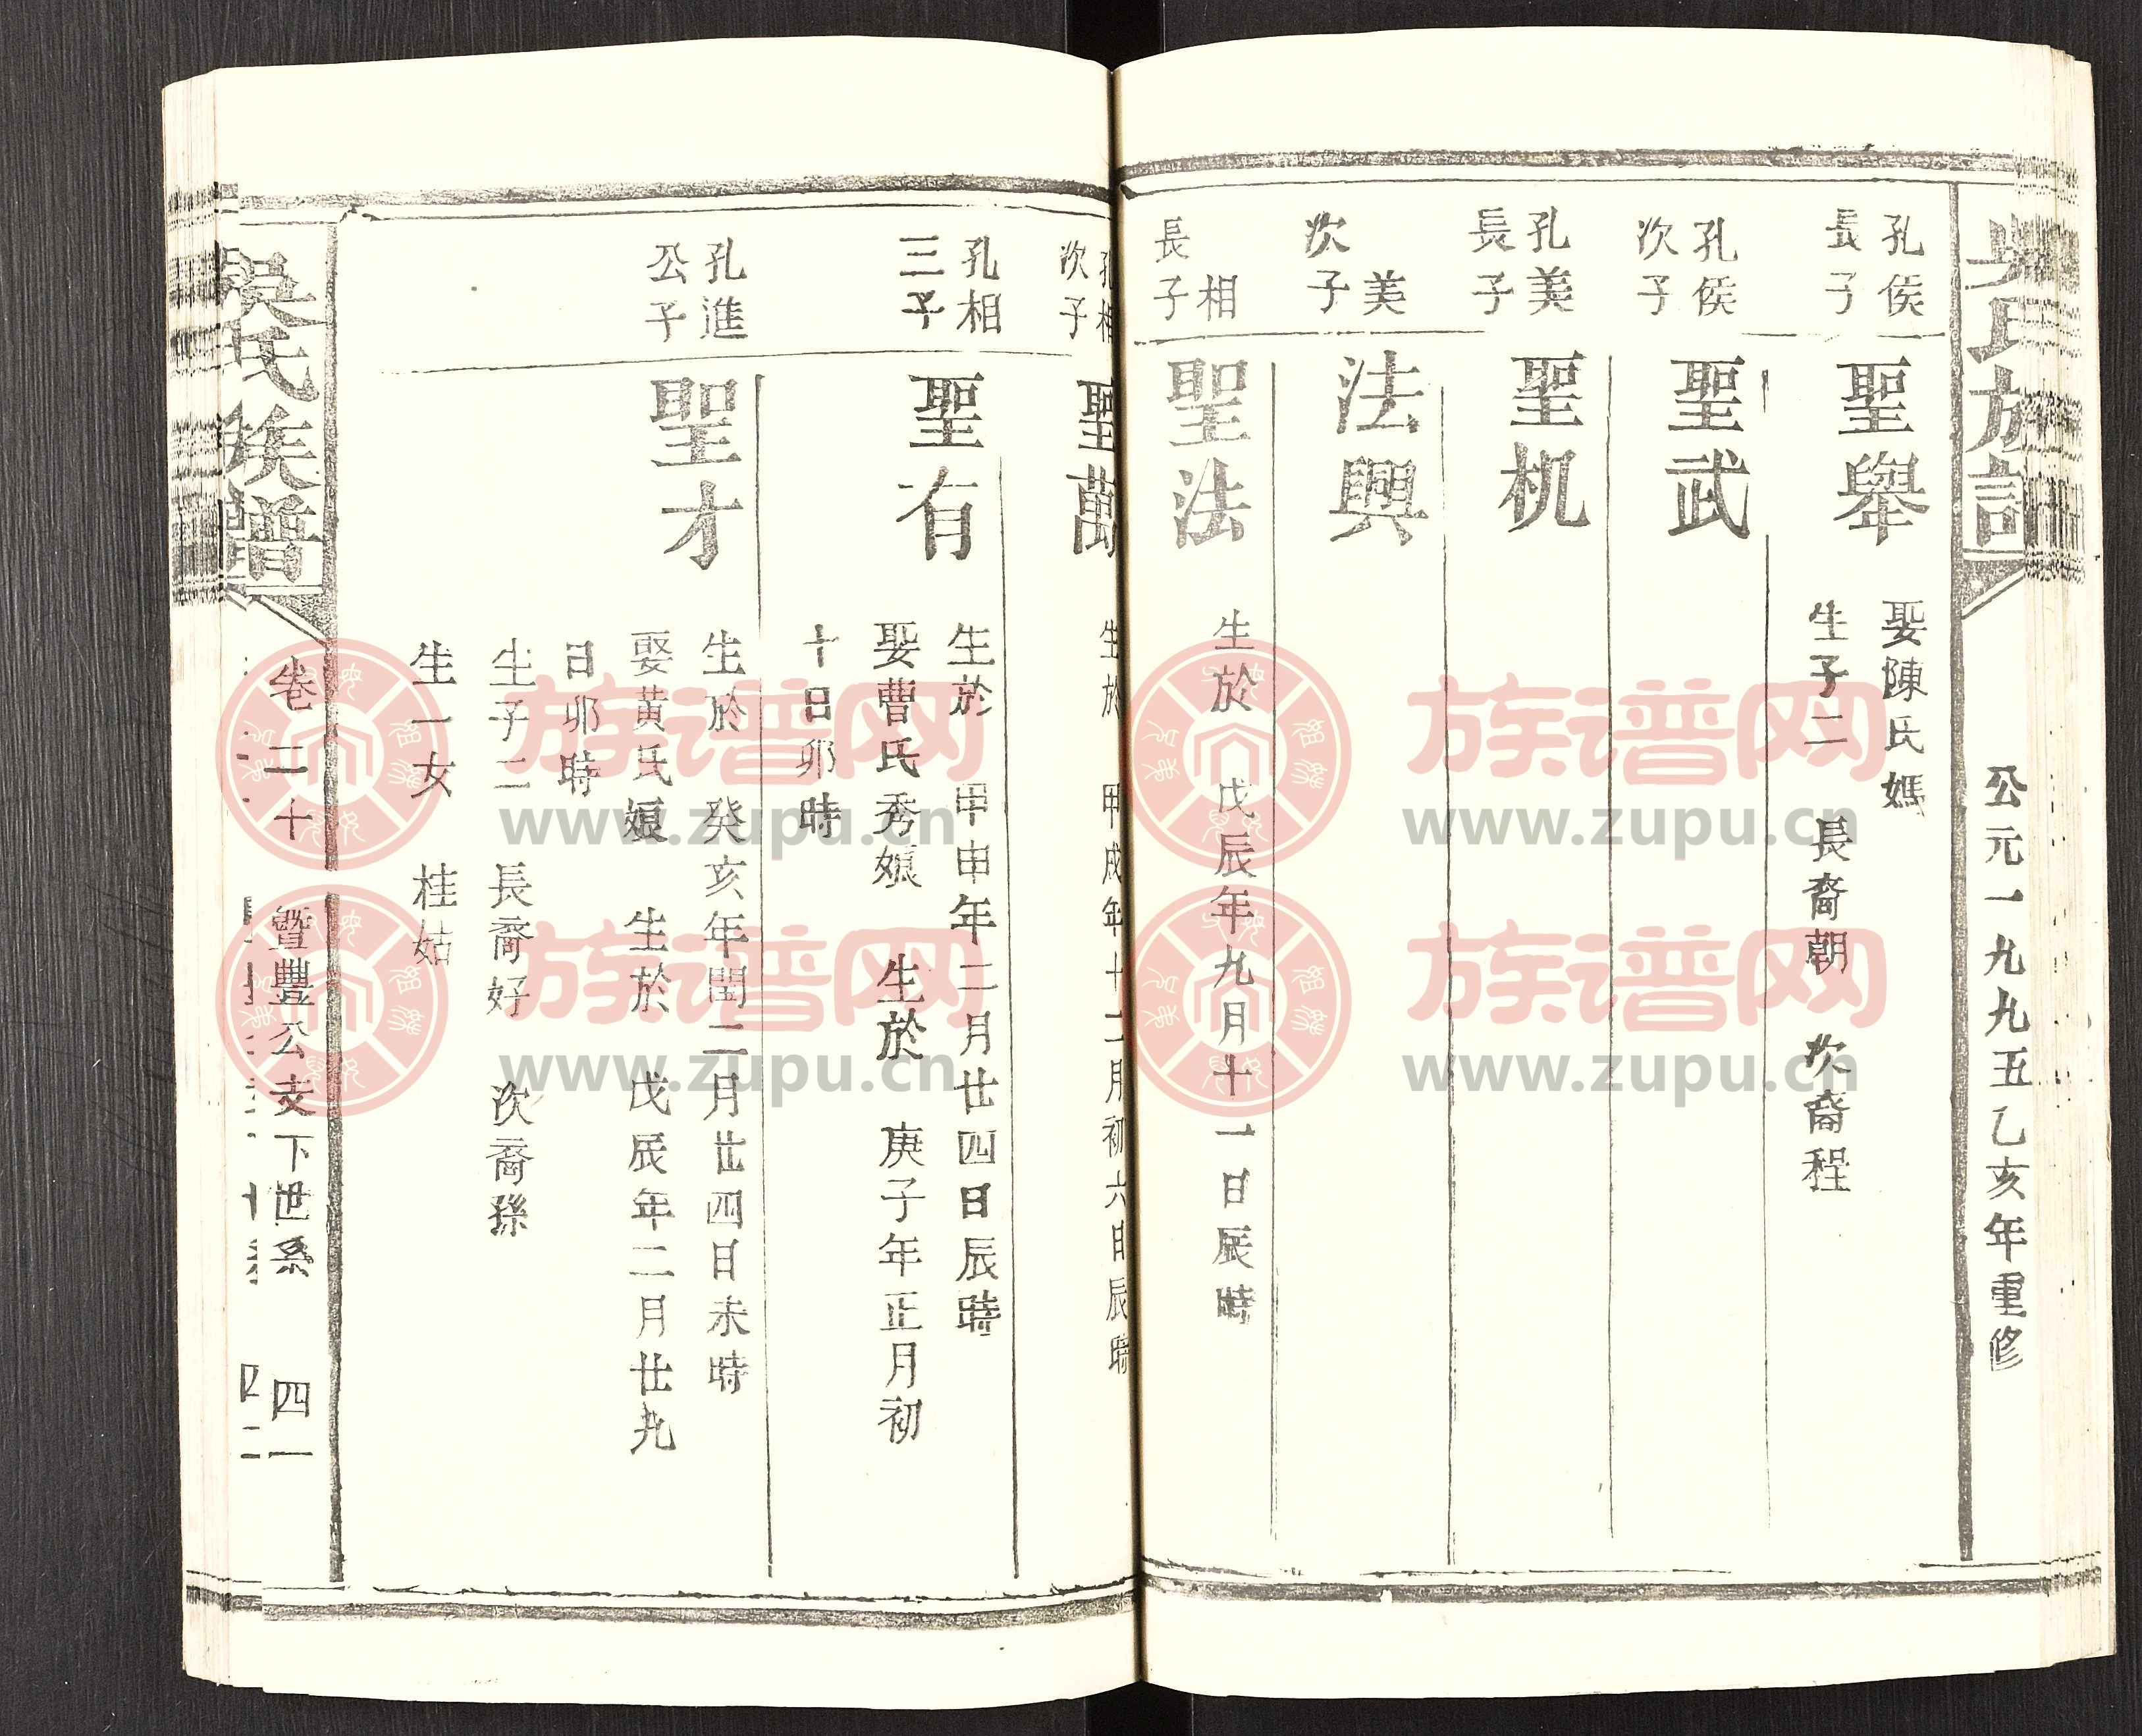 吳氏族譜
公元一九九五乙亥年重修
孔侯
長子
聖舉
娶陳氏媽
生子二 長裔朝 次裔程
孔侯
次子
聖武
孔美
長子
聖机
美
次子
法興
相
長子
聖法
生於 戊辰年九月十一日辰時
孔相
次子
聖萬
生於 甲戌年十二月初六日辰時
孔相
三子
聖有
生於 甲申年二月廿四日辰時
娶曹氏秀娘 生於 庚子年正月初
十日卯時
孔進
公子
聖才
生於 癸亥年閏二月廿四日未時
娶黃氏娘 生於 戊辰年二月廿九
日卯時
生子二 長裔好 次裔孫
生一女 桂姑
吳氏族譜
卷二十
暨豐公支下世系
四一
四二
族谱网
www.zupu.cn
族谱网
www.zupu.cn
族谱网
www.zupu.cn
族谱网
www.zupu.cn